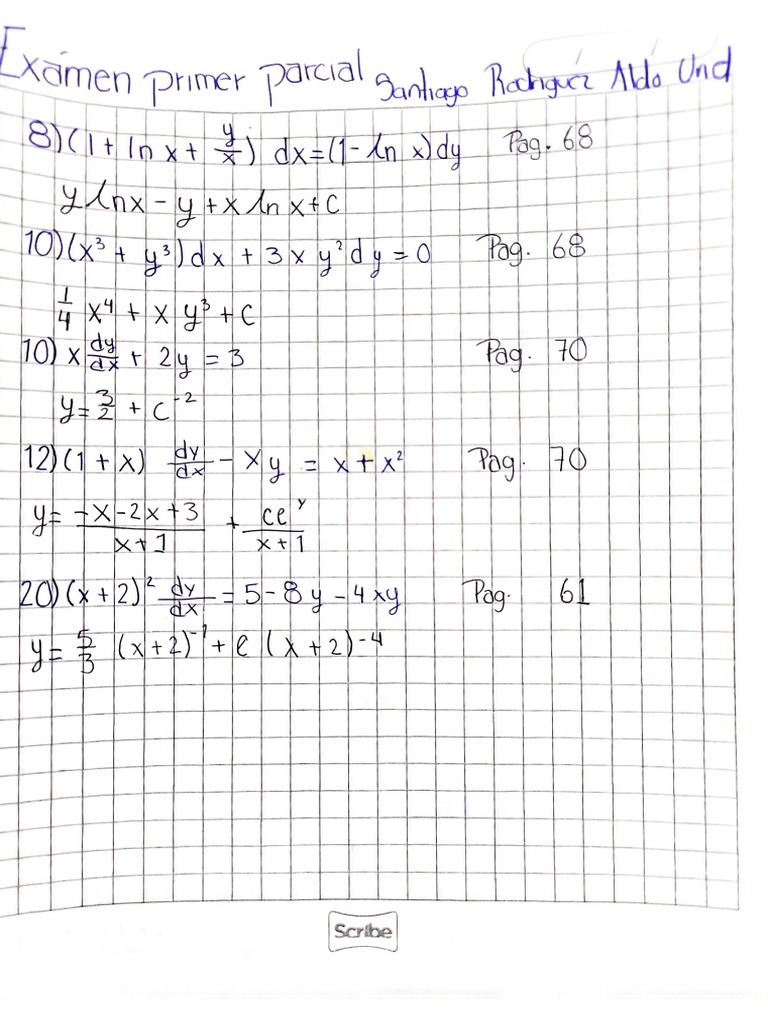 Exámen primer parcial Santiago Rodriguez Aldo Uriel
8) (1 + ln x + y/x) dx = (1 - ln x) dy Pag. 68
y ln x - y + x ln x + C
10) (x³ + y³) dx + 3 x y² dy = 0 Pag. 68
1/4 x⁴ + x y³ + C
10) x dy/dx + 2y = 3 Pag. 70
y = 3/2 + C⁻²
12) (1 + x) dy/dx - xy = x + x² Pag. 70
y = (-x - 2x + 3)/(x + 1) + ce^x/(x + 1)
20) (x + 2)² dy/dx = 5 - 8y - 4xy Pag. 61
y = 5/3 (x + 2)⁻¹ + C (x + 2)⁻⁴
Scribe